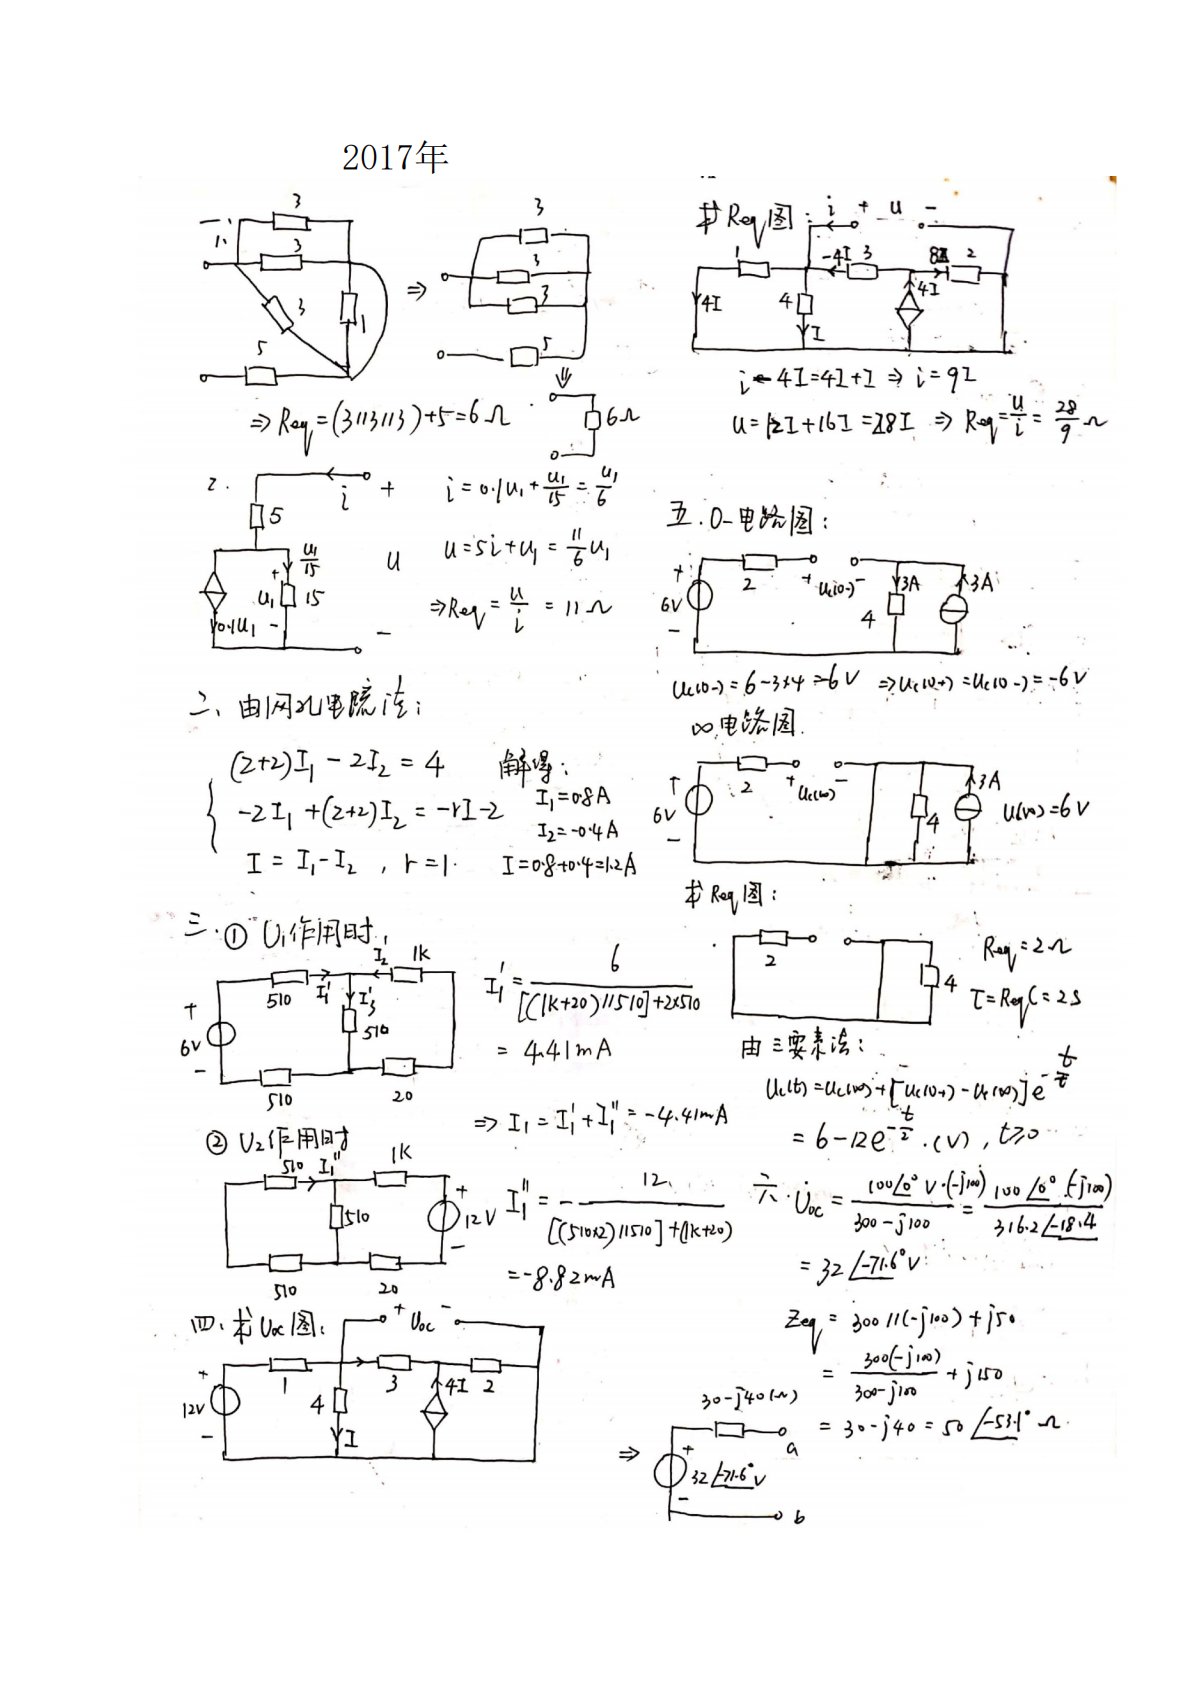 2017年
一、
1.
3
3
3
1
5
⇒
3
3
3
5
⇒ Req=(3//3//3)+5=6Ω
6Ω
2.
i
+
5
u1/15
+
u1
15
0.1u1
-
u
-
i=0.1u1+u1/15=u1/6
u=5i+u1=11/6u1
⇒Req=u/i=11Ω
二、由网孔电流法:
(2+2)I1-2I2=4
-2I1+(2+2)I2=-rI-2
I=I1-I2,r=1.
解得:
I1=0.8A
I2=-0.4A
I=0.8+0.4=1.2A
三.① U1作用时
+
6V
-
510
I1'
I2'
1K
I3'
510
510
20
I1'=6/([(1K+20)//510]+2x510)
=4.41mA
⇒ I1=I1'+I1''=-4.41mA
② U2作用时
510
I1''
1K
510
+
12V
-
510
20
I1''=-12/([(510x2)//510]+(1K+20))
=-8.82mA
四、求Uoc图:
+ Uoc -
+
12V
-
1
4
I
3
4I
2
求Req图:
i
+ u -
1
-4I
3
8I
2
4I
4
I
4I
i-4I=4I+I ⇒ i=9I
u=12I+16I=28I ⇒ Req=u/i=28/9Ω
五.0-电路图:
+
6V
-
2
+ uc(0-) -
3A
4
3A
uc(0-)=6-3x4=-6V ⇒uc(0+)=uc(0-)=-6V
∞电路图.
6V
-
2
+ uc(∞) -
4
3A
u(∞)=6V
求Req图:
2
4
Req=2Ω
τ=ReqC=2S
由三要素法:
uc(t)=uc(∞)+[uc(0+)-uc(∞)]e^-t/τ
=6-12e^-t/2.(V),t≥0
六.U̇oc=100∠0°V·(-j100)/(300-j100)=100∠0°(-j100)/(316.2∠-18.4)
=32∠-71.6°V
Zeq=300//(-j100)+j50
=300(-j100)/(300-j100)+j50
=30-j40=50∠-53.1°Ω
⇒
30-j40(Ω)
a
+
32∠-71.6°V
-
b